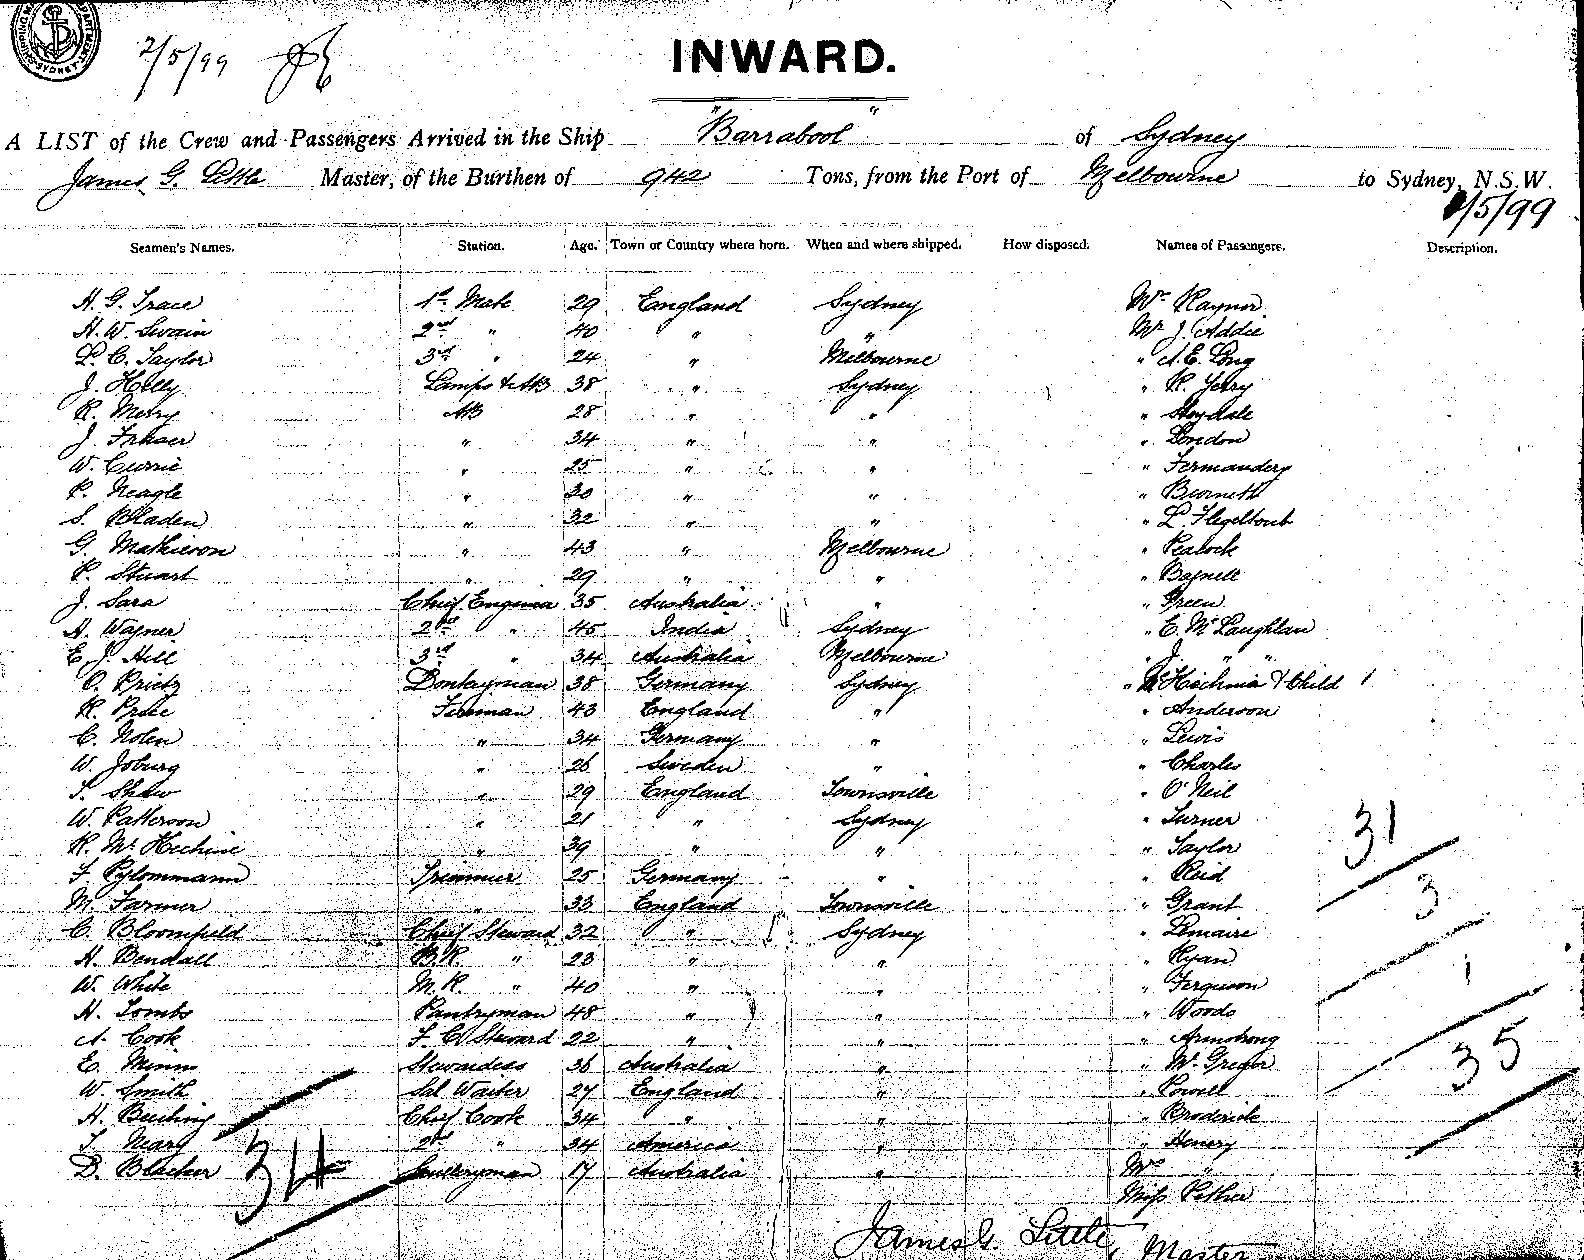 SYDNEY
2/5/99
INWARD.
A LIST of the Crew and Passengers Arrived in the Ship "Barrabool" of Sydney
James G. Little Master, of the Burthen of 942 Tons, from the Port of Melbourne to Sydney, N.S.W.
1/5/99
Seamen's Names. Station. Age. Town or Country where born. When and where shipped. How disposed. Names of Passengers. Description.
H. G. Trace 1st Mate 29 England Sydney Mr Raynor
H. W. Swain 2nd " 40 " " Mr J. Addie
L. C. Taylor 3rd " 24 " Melbourne " A. E. Long
J. Helly Lamps & AB 38 " Sydney " R. Terry
R. Merry AB 28 " " "
J. Fraser " 34 " " " London
W. Currie " 25 " " "
P. Neagle " 30 " " "
S. Bladen " 32 " " " L.
G. Mathieson " 43 " Melbourne " Peacock
P. Stuart " 29 " " " Bagnell
J. Sara Chief Engineer 35 Australia " " Green
H. Wagner 2nd " 45 India Sydney " C. McLaughlan
E. J. Hill 3rd " 34 Australia Melbourne " J. " "
O. Prietz Donkeyman 38 Germany Sydney " & Child 1
R. Price Fireman 43 England " " Anderson
C. Nolen " 34 Germany " " Lewis
W. Joburg " 26 Sweden " " Charles
T. Shaw " 29 England Townsville " O'Neil
W. Patterson " 21 " Sydney " Turner
R. " 39 " " " Taylor
F. Trimmer 25 Germany " " Reid
M. Farmer " 33 England Townsville " Grant
C. Bloomfield Chief Steward 32 " Sydney " Lemaire
H. Bendall B.R. " 23 " " " Ryan
W. White M.R. " 40 " " " Ferguson
H. Tombs Pantryman 48 " " " Woods
A. Cook F. C. Steward 22 " " " Armstrong
E. Minns Stewardess 36 Australia " " McGregor
W. Smith Sal Waiter 27 England " " Powell
H. Chief Cook 34 " " " Broderick
T. Neary 2nd " 34 America " " Henery
D. Blacker Sculleryman 17 Australia " Mrs "
Miss Pether
34
31
3
1
35
James G. Little, Master